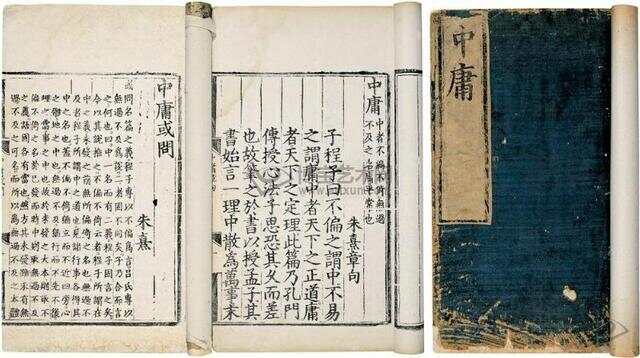 中庸
中庸 中者不偏不倚無過
不及之名庸平常也
朱熹章句
子程子曰不偏之謂中不易
之謂庸中者天下之正道庸
者天下之定理此篇乃孔門
傳授心法子思恐其久而差
也故筆之於書以授孟子其
書始言一理中散爲萬事末
中庸或問
朱熹
或問名篇之義程子專以不偏爲言呂氏專以
無過不及爲說二者固不同矣子乃合而言
之何也曰中一名而有二義程子固言之矣
今以其說推之不偏不倚云者程子所謂在
中之義未發之前無所偏倚之名也無過不
及者程子所謂中之道也見諸行事各得其
中之名也蓋不偏不倚猶立而不近四旁心
之體地之中也無過不及猶行而不先不後
理之當事之中也故於未發之大本則取不
偏不倚之名於已發而時中則取無過不及
之義語固各有當也然方其未發雖未有無
過不及之可名而所以爲無過不及之本體